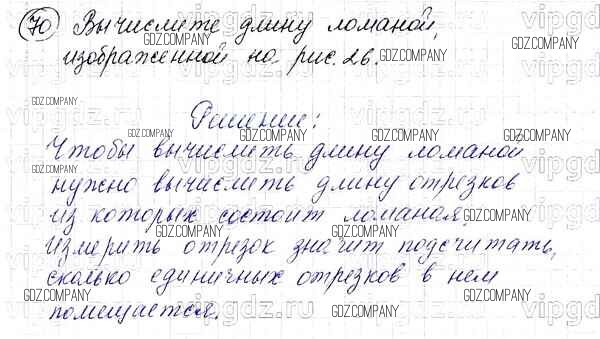 70 Вычислите длину ломаной,
изображенной на рис. 26.
Решение:
Чтобы вычислить длину ломаной
нужно вычислить длину отрезков
из которых состоит ломаная.
Измерить отрезок значит подсчитать,
сколько единичных отрезков в нем
помещается.